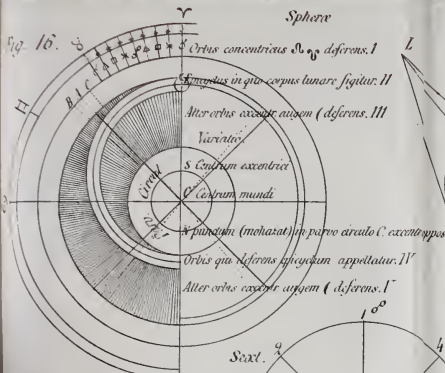 Fig. 16.
♈
Sphæræ
♉
Orbis concentricus ☊ ☋ deferens. I
L
♊
B I C
Epicyclus in quo corpus lunare figitur. II
Alter orbis excentr augem ☾ deferens. III
Variatio.
S Centrum excentrici
Circul
C Centrum mundi
N punctum (mohazat) in parvo circulo C. excentr oppos
Orbis qui deferens epicyclum appellatur. IV
Alter orbis excentr augem ☾ deferens. V
Sext.
1
4